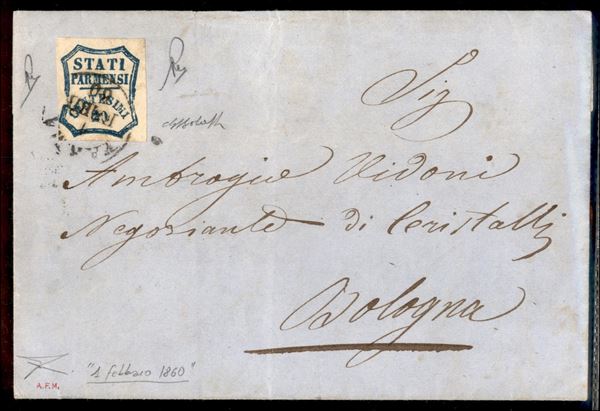 STATI
PARMENSI
Sig
Ambrogio Vidoni
Negoziante di Cristalli
Bologna
"1 febbraio 1860"
A.F.M.